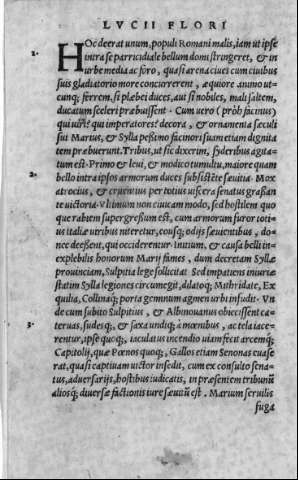 LVCII FLORI
2.
HOc deerat unum, populi Romani malis, iam ut ipse
intra se parricidiale bellum domi stringeret, & in
urbe media ac foro, quasi arena ciues cum ciuibus
suis gladiatorio more concurrerent, æquiore animo ut-
cunq; ferrem, si plebei duces, aut si nobiles, mali saltem,
ducatum sceleri præbuissent. Cum uero (proh facinus)
qui uiri? qui imperatores? decora, & ornamenta sæculi
sui Marius, & Sylla pessimo facinori suam etiam dignita
tem præbuerunt. Tribus, ut sic dixerim, syderibus agita-
tum est. Primo & leui, & modico tumultu, maiore quam
2.
bello intra ipsos armorum duces subsistete sæuitia. Mox
atrocius, & cruentius per totius uiscera senatus grassan
te uictoria. Vltimum non ciuicam modo, sed hostilem quo
que rabiem supergressum est, cum armorum furor toti-
us italiæ uiribus niteretur, eousq; odijs sæuientibus, do-
nec deessent, qui occiderentur. Initium, & causa belli in-
explebilis honorum Marij fames, dum decretam Syllæ
prouinciam, Sulpitia lege sollicitat. Sed impatiens iniuriæ
statim Sylla legiones circumegit, dilatoq; Mithridate, Ex
quilia, Collinaq; porta geminum agmen urbi infudit. Vn
de cum subito Sulpitius, & Albinouanus obiecissent ca-
3.
teruas, sudesq;, & saxa undiq; à mœnibus, ac tela iace-
rentur, ipse quoq;, iaculatus incendio uiam fecit arcemq;
Capitolij, quæ Pœnos quoq;, Gallos etiam Senonas euase
rat, quasi captiuam uictor insedit, cum ex consulto sena-
tus, aduersarijs, hostibus iudicatis, in præsentem tribunũ
aliosq; diuersæ factionis iure sæuitũ est. Marium seruilis
fuga